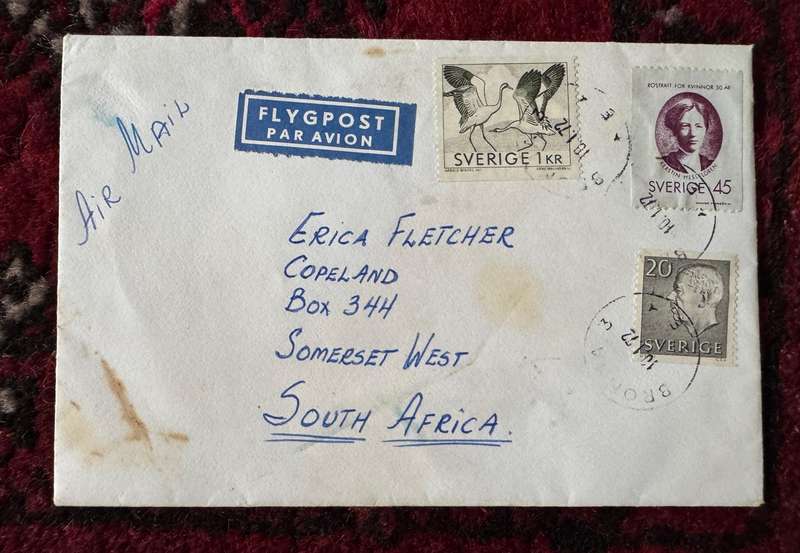 AIR MAIL
FLYGPOST
PAR AVION
SVERIGE 1 KR
RÖSTRÄTT FÖR KVINNOR 50 ÅR
KERSTIN HESSELGREN
SVERIGE 45
20
SVERIGE
10.1.72
10.1.72
10.1.72
ERICA FLETCHER
COPELAND
BOX 344
SOMERSET WEST
SOUTH AFRICA.